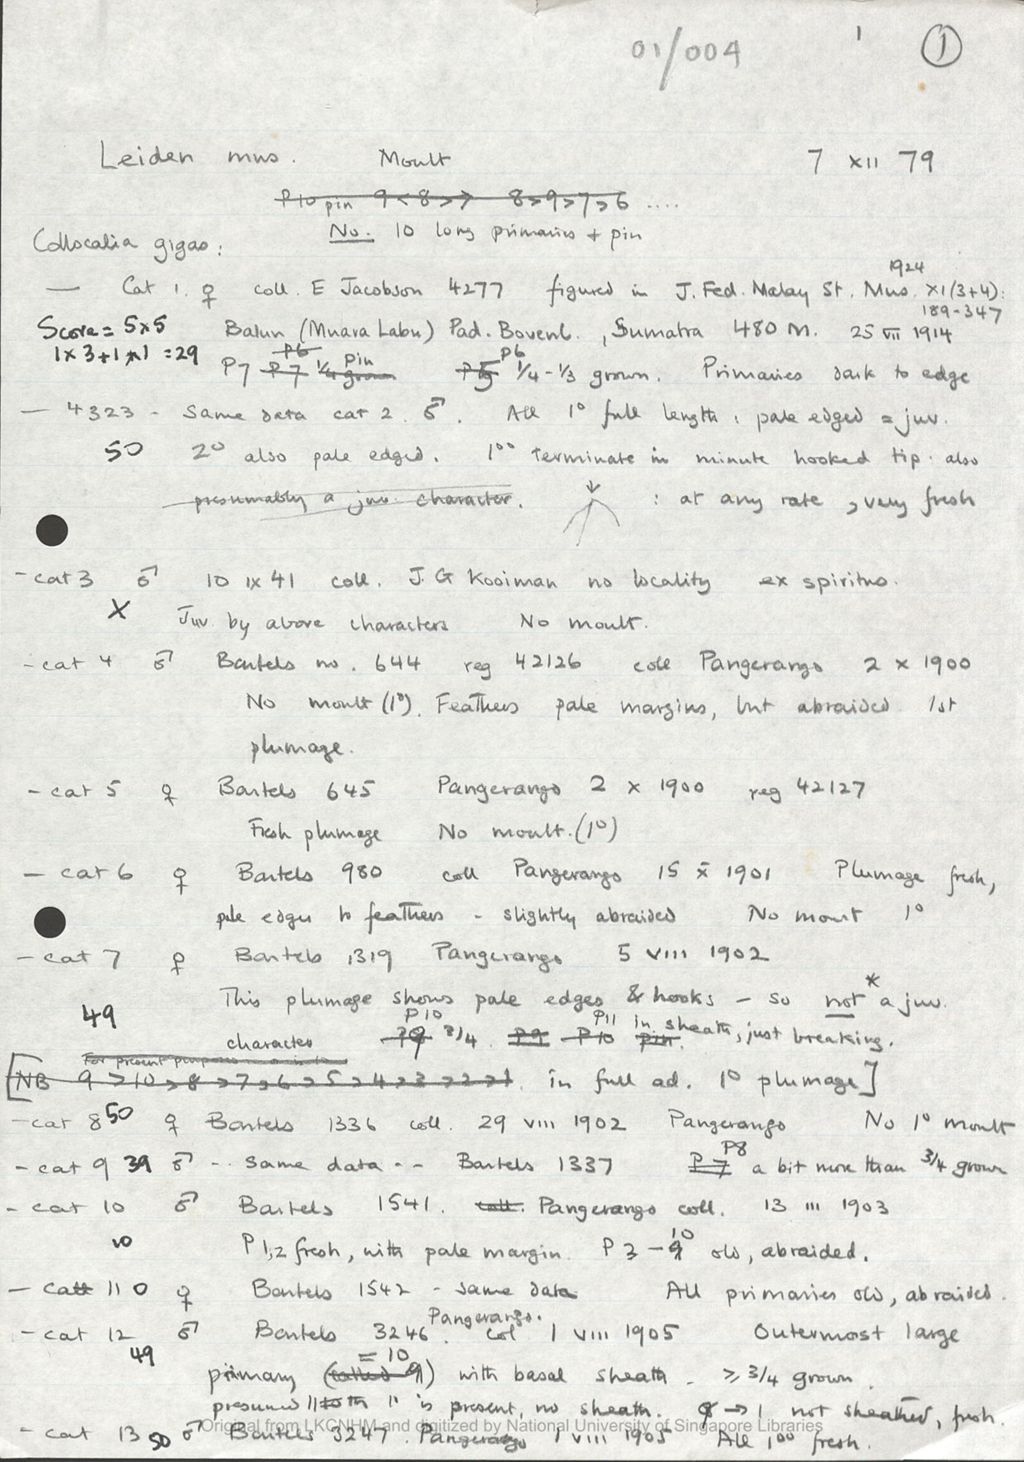 01/004 1 1
Leiden mus. Moult 7 XII 79
P10 pin 9<8>7 8>9>7>6 ....
No. 10 long primaries + pin
Collocalia gigas:
1924
— Cat 1. ♀ coll. E Jacobson 4277 figured in J. Fed. Malay St. Mus. XI(3+4):
189-347
Score = 5x5 Balun (Muara Labu) Pad. Bovenl., Sumatra 480 m. 25 VII 1914
1x3+1x1 = 29
P6 pin P6
P7 P7 1/4 grown P5 1/4 - 1/3 grown. Primaries dark to edge
— 4323 - Same data cat 2. ♂. All 1° full length: pale edged = juv.
50 2° also pale edged. 1°° terminate in minute hooked tip. also
presumably a juv. character. : at any rate, very fresh
- cat 3 ♂ 10 IX 41 coll. J. G Kooiman no locality ex spiritus.
X Juv by above characters No moult.
- cat 4 ♂ Bartels no. 644 reg 42126 coll Pangerango 2 X 1900
No moult (1°). Feathers pale margins, but abraided 1st
plumage.
- cat 5 ♀ Bartels 645 Pangerango 2 X 1900 reg 42127
Fresh plumage No moult. (1°)
— cat 6 ♀ Bartels 980 coll Pangerango 15 X 1901 Plumage fresh,
pale edges to feathers - slightly abraided No moult 1°
- cat 7 ♀ Bartels 1319 Pangerango 5 VIII 1902
This plumage shows pale edges & hooks - so not * a juv.
49 P10 P11 in sheath, just breaking.
character P9 3/4. P9 P10 pin.
For present purposes
[NB 9>10>8>7>6>5>4>3>2>1. in full ad. 1° plumage]
- cat 8 50 ♀ Bartels 1336 coll. 29 VIII 1902 Pangerango No 1° moult
P8
- cat 9 39 ♂ -- same data -- Bartels 1337 P7 a bit more than 3/4 grown
- cat 10 ♂ Bartels 1541. coll. Pangerango coll. 13 III 1903
10
10 P1,2 fresh, with pale margin. P3-9 old, abraided.
— cat 11 0 ♀ Bartels 1542 - same data All primaries old, abraided.
Pangerango.
- cat 12 ♂ Bartels 3246. col 1 VIII 1905 Outermost large
49 = 10
primary (called 9) with basal sheath - ⩾ 3/4 grown.
presumed 11 10th " is present, no sheath. 9 → 1 not sheathed, fresh.
- cat 13 50 ♂ Bartels 3247. Pangerango 1 VIII 1905 All 1°° fresh.
Original from LKCNHM and digitized by National University of Singapore Libraries